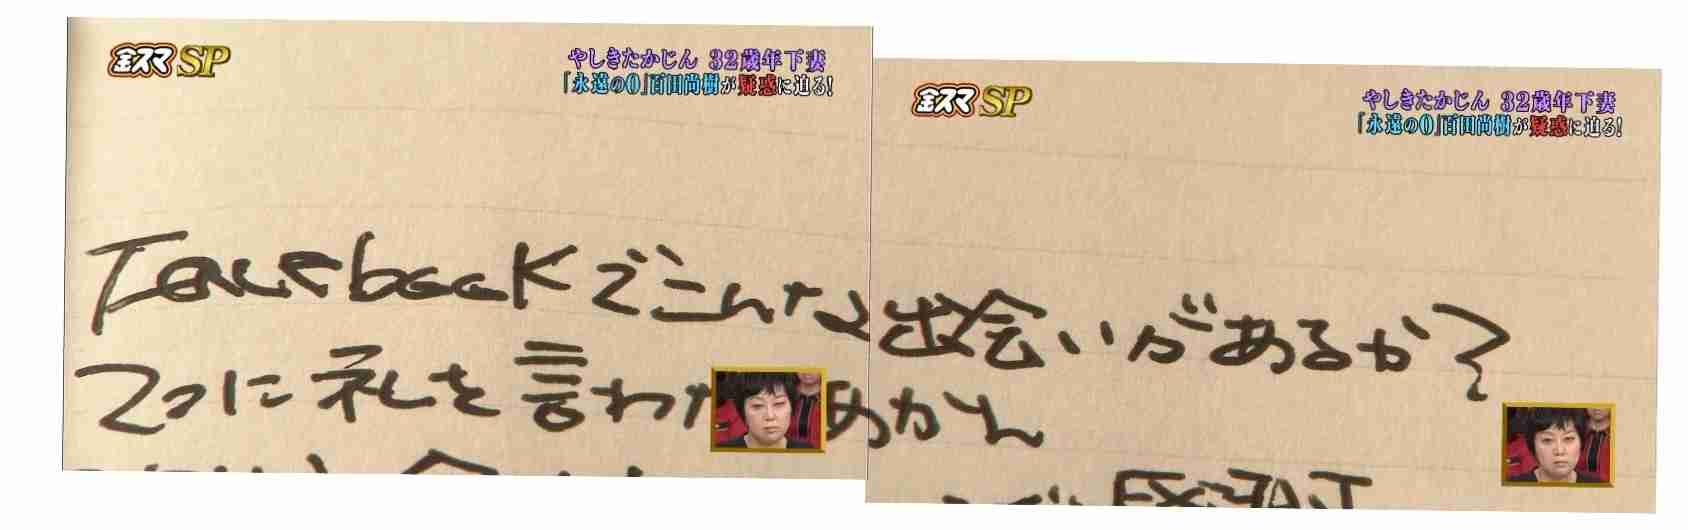 金スマSP
やしきたかじん 32歳年下妻
「永遠の0」百田尚樹が疑惑に迫る!
金スマSP
やしきたかじん 32歳年下妻
「永遠の0」百田尚樹が疑惑に迫る!
Facebookでこんな出会いがあるか?
に礼を言わなあかん